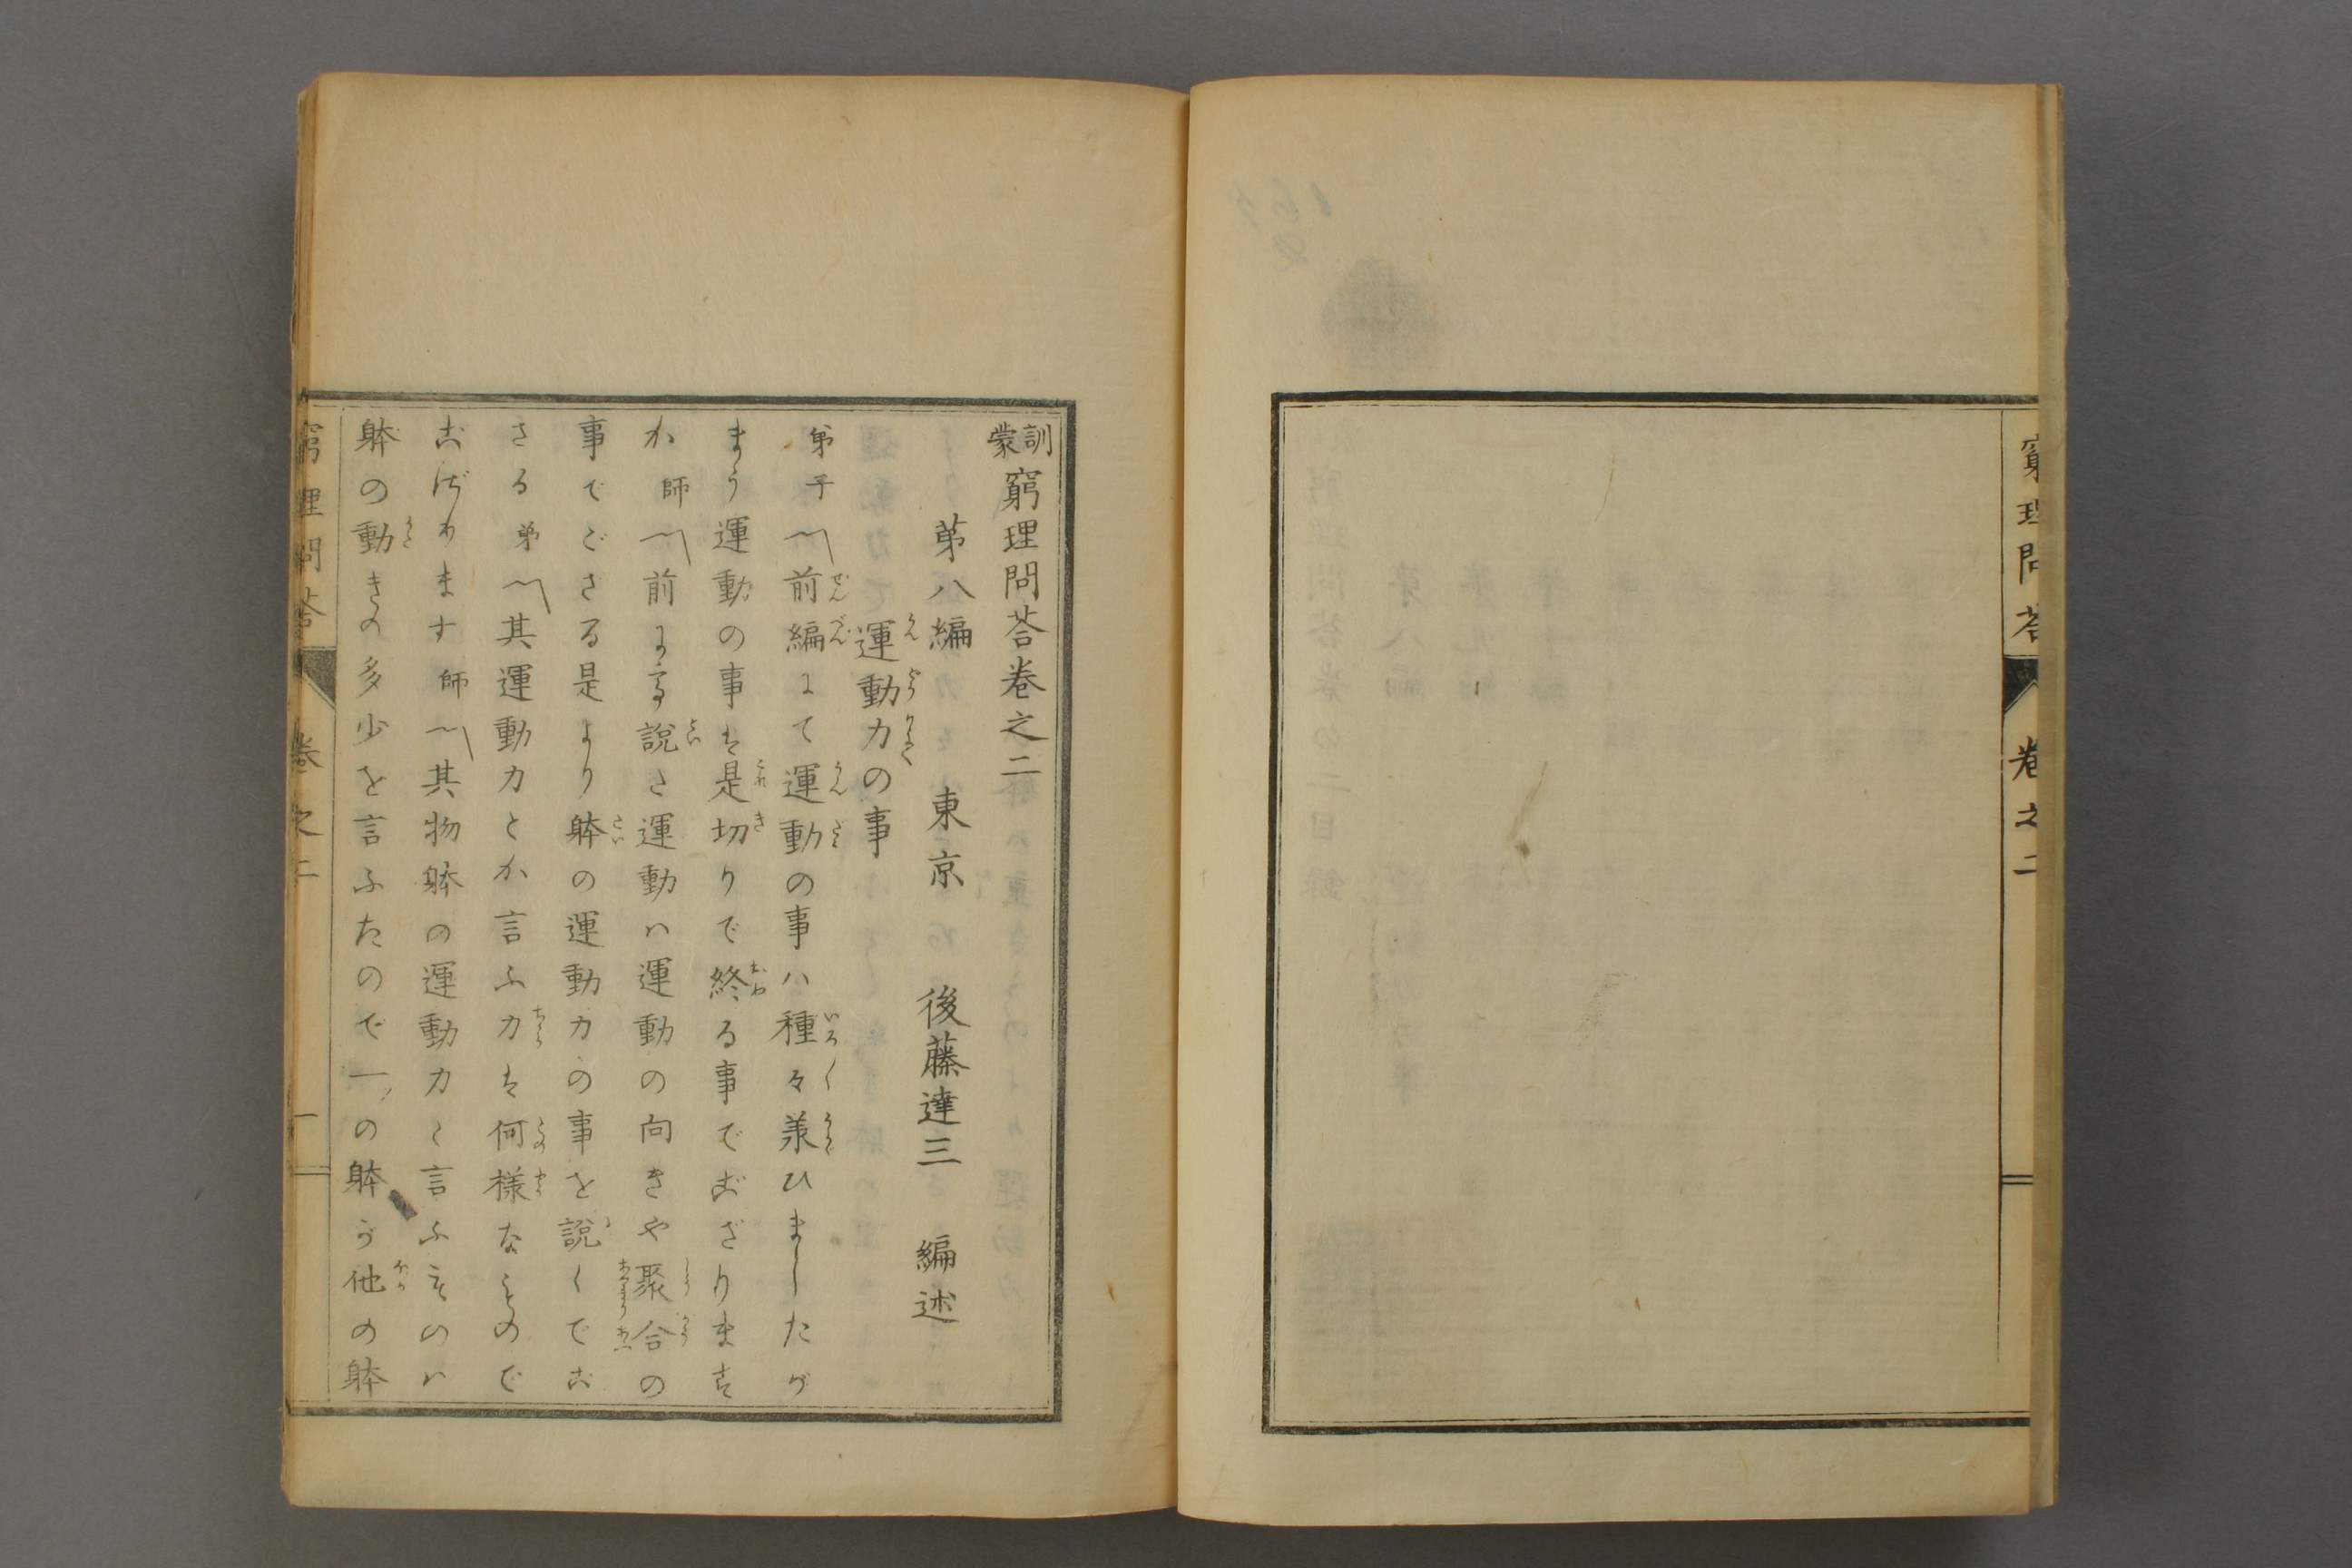 窮理問荅
卷之二
訓蒙窮理問荅卷之二
第八編 東京 後藤達三 編述
運動力の事
弟子〽前編にて運動の事ハ種々羕ひましたが
まう運動の事は是切りで終る事でござります
か 師〽前に説た運動ハ運動の向きや聚合の
事でござる是より躰の運動力の事を説くでご
さる 弟〽其運動力とか言ふ力は何様なもので
ござります 師〽其物躰の運動力と言ふものハ
躰の動きの多少を言ふたので一の躰が他の躰
窮理問荅
卷之二
一